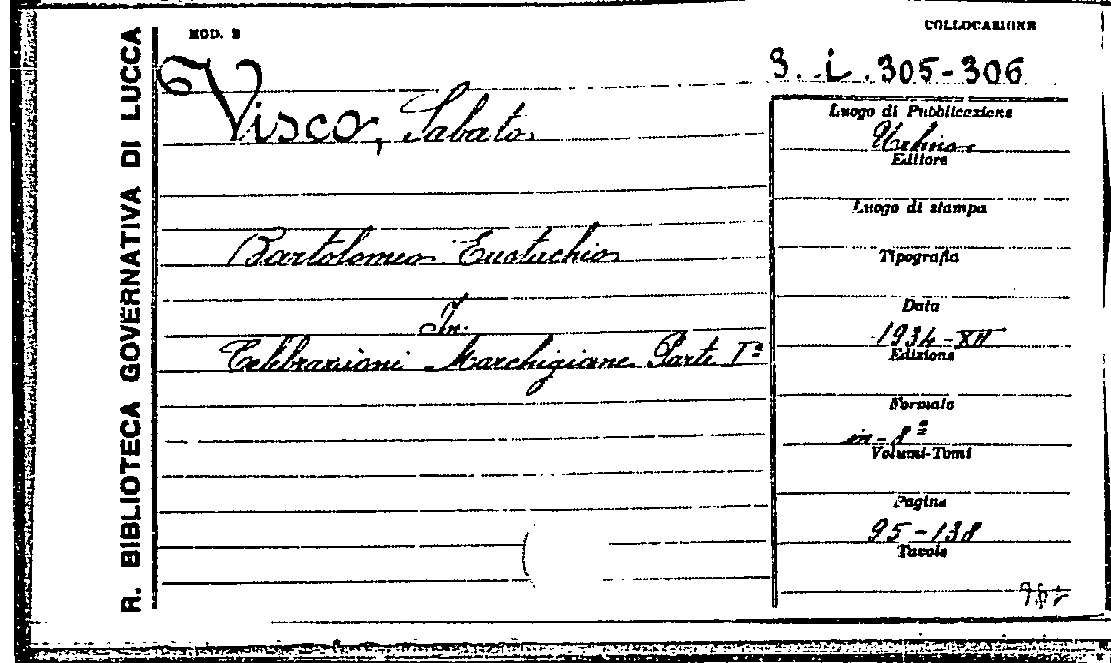 R. BIBLIOTECA GOVERNATIVA DI LUCCA
MOD. 2
COLLOCAZIONE
3. i. 305-306
Visco, Sabato
Bartolomeo Eustachio
In:
Celebrazioni Marchigiane Parte Iª
Luogo di Pubblicazione
Urbino
Editore
Luogo di stampa
Tipografia
Data
1934-XII
Edizione
Formato
in-8º
Volumi-Tomi
Pagine
95-138
Tavole